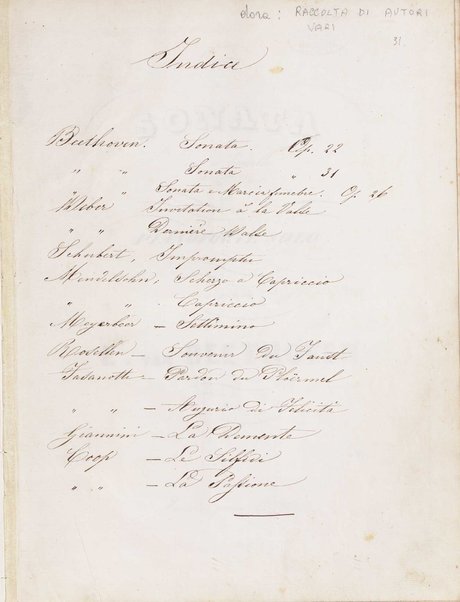 ora: RACCOLTA DI AUTORI
VARI
31
Indice
Beethoven. Sonata. Op. 22
" " Sonata " 31
" " Sonata e Marcia funebre. Op. 26
Weber Invitation à la Valse
" " Dernière Valse
Schubert, Impromptu
Mendelsohn, Scherzo a Capriccio
" " Capriccio
Meyerbeer — Settimino
Rosellen — Souvenir du Faust
Fasanotti — Pardon du Ploërmel
" " — Augurio di Felicità
Giannini — La Demente
Coop — Le Silfidi
" " — La Passione